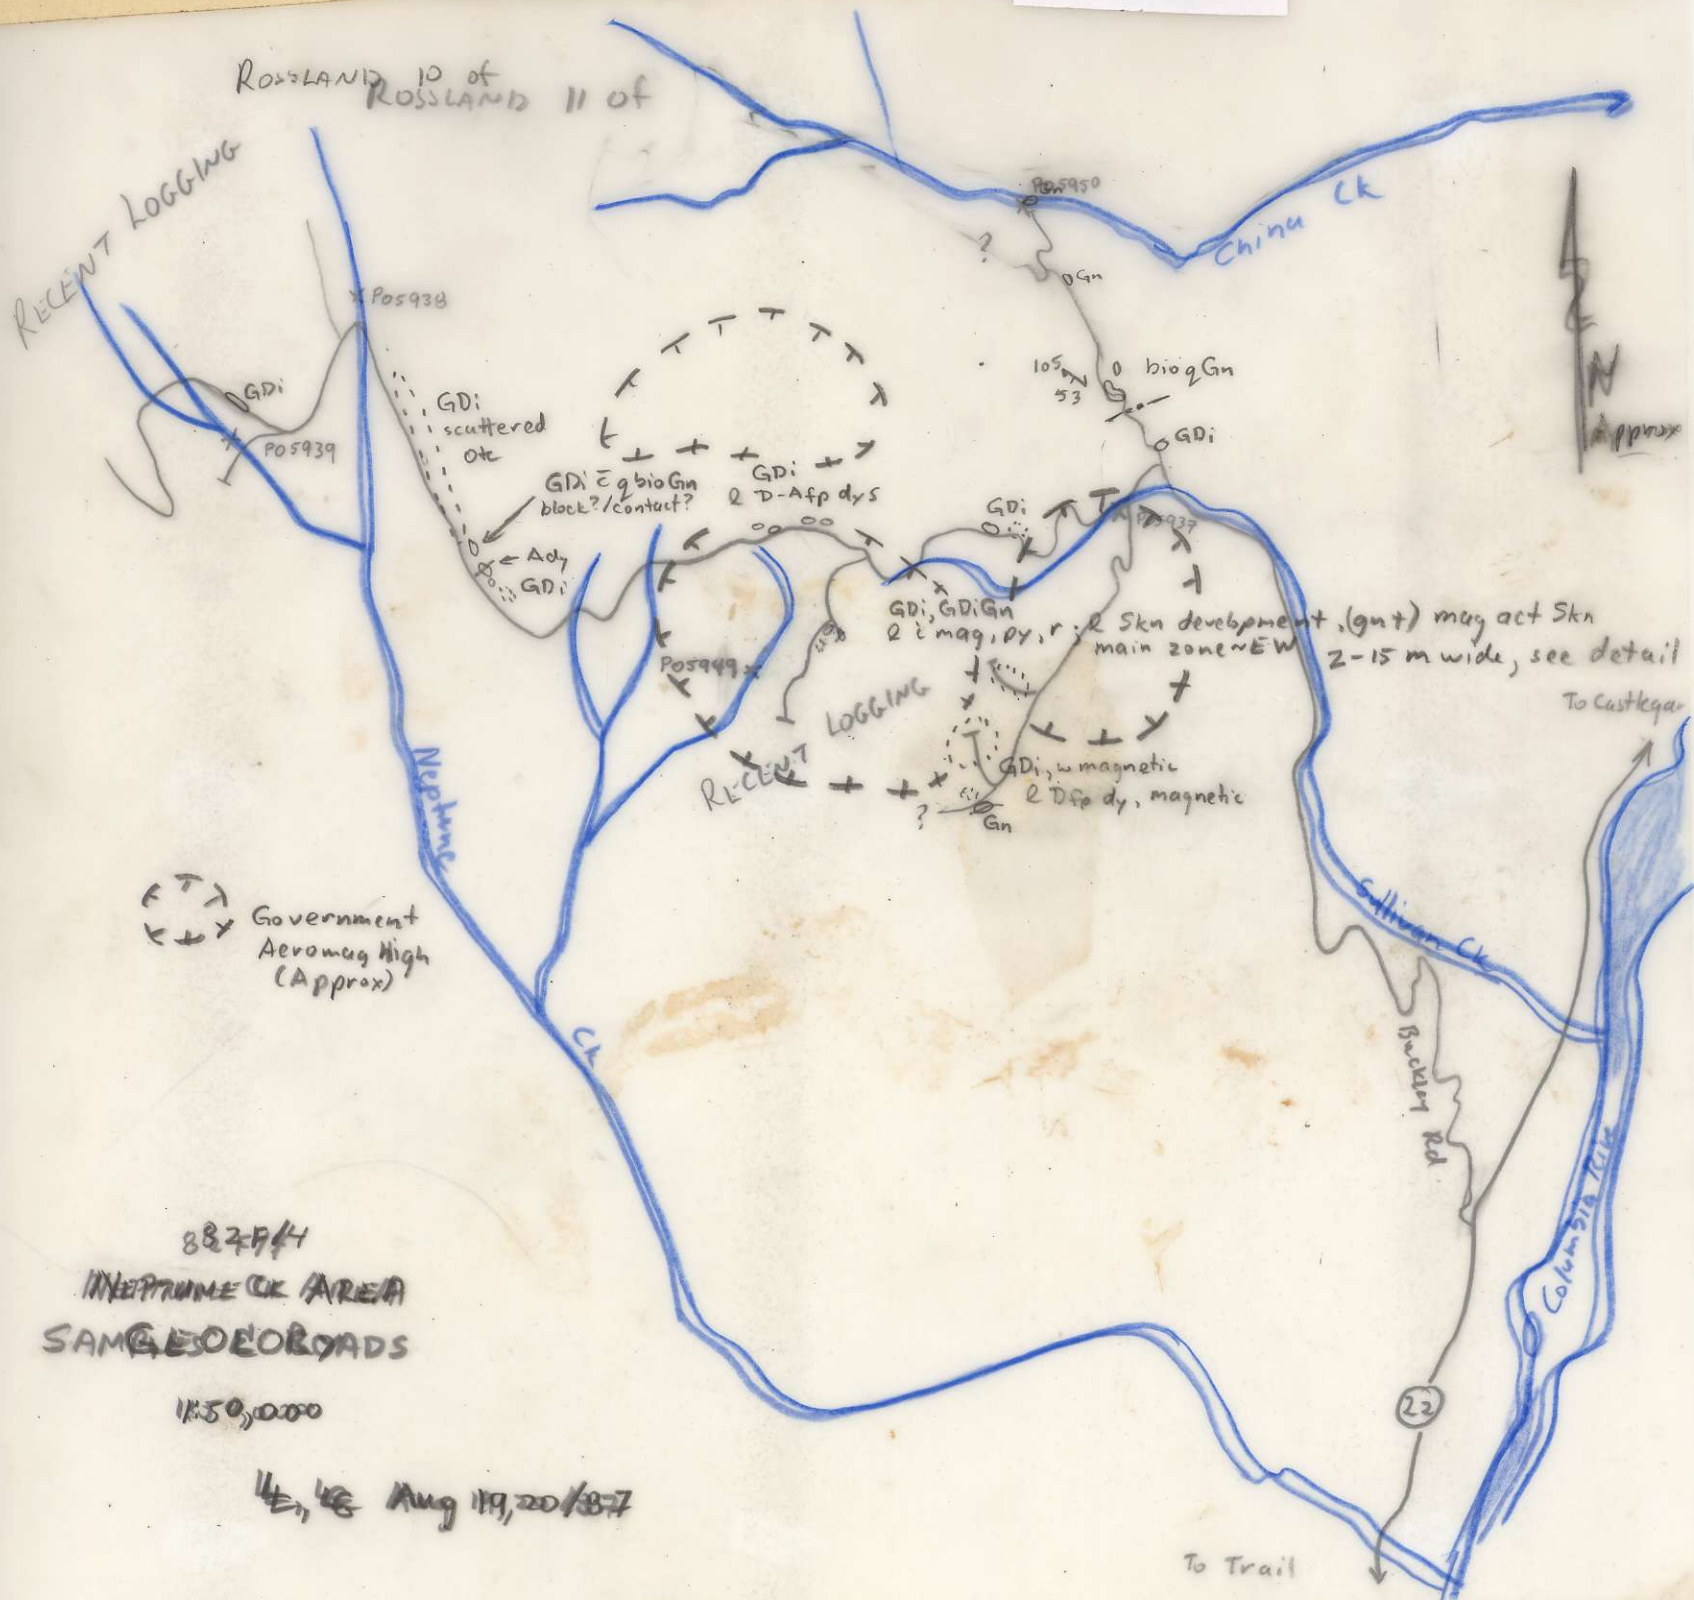 ROSSLAND 10 of
ROSSLAND 11 of
RECENT LOGGING
P05950
Gn
China Ck
?
Gn
P05938
105
53
bioqGn
N
Approx
GDi
P05939
GDi
scattered
Otc
GDi
GDi c̄ qbioGn
block?/contact?
GDi
& D-Afp dys
GDi
P05937
← Ady
GDi
GDi, GDiGn
& c̄ mag, py, r; & Skn development, (gnt) mag act Skn
main zone ~EW 2-15 m wide, see detail
P05949
RECENT LOGGING
To Castlegar
GDi, w magnetic
& Dfp dy, magnetic
?
Gn
Neptune Ck
Sullivan Ck
Government
Aeromag High
(Approx)
Buckley Rd
Columbia Riv
82F/4
NEPTUNE CK AREA
SAMPLES & ROADS
GEOLOGY
1:50,000
22
Aug 19, 20/87
To Trail